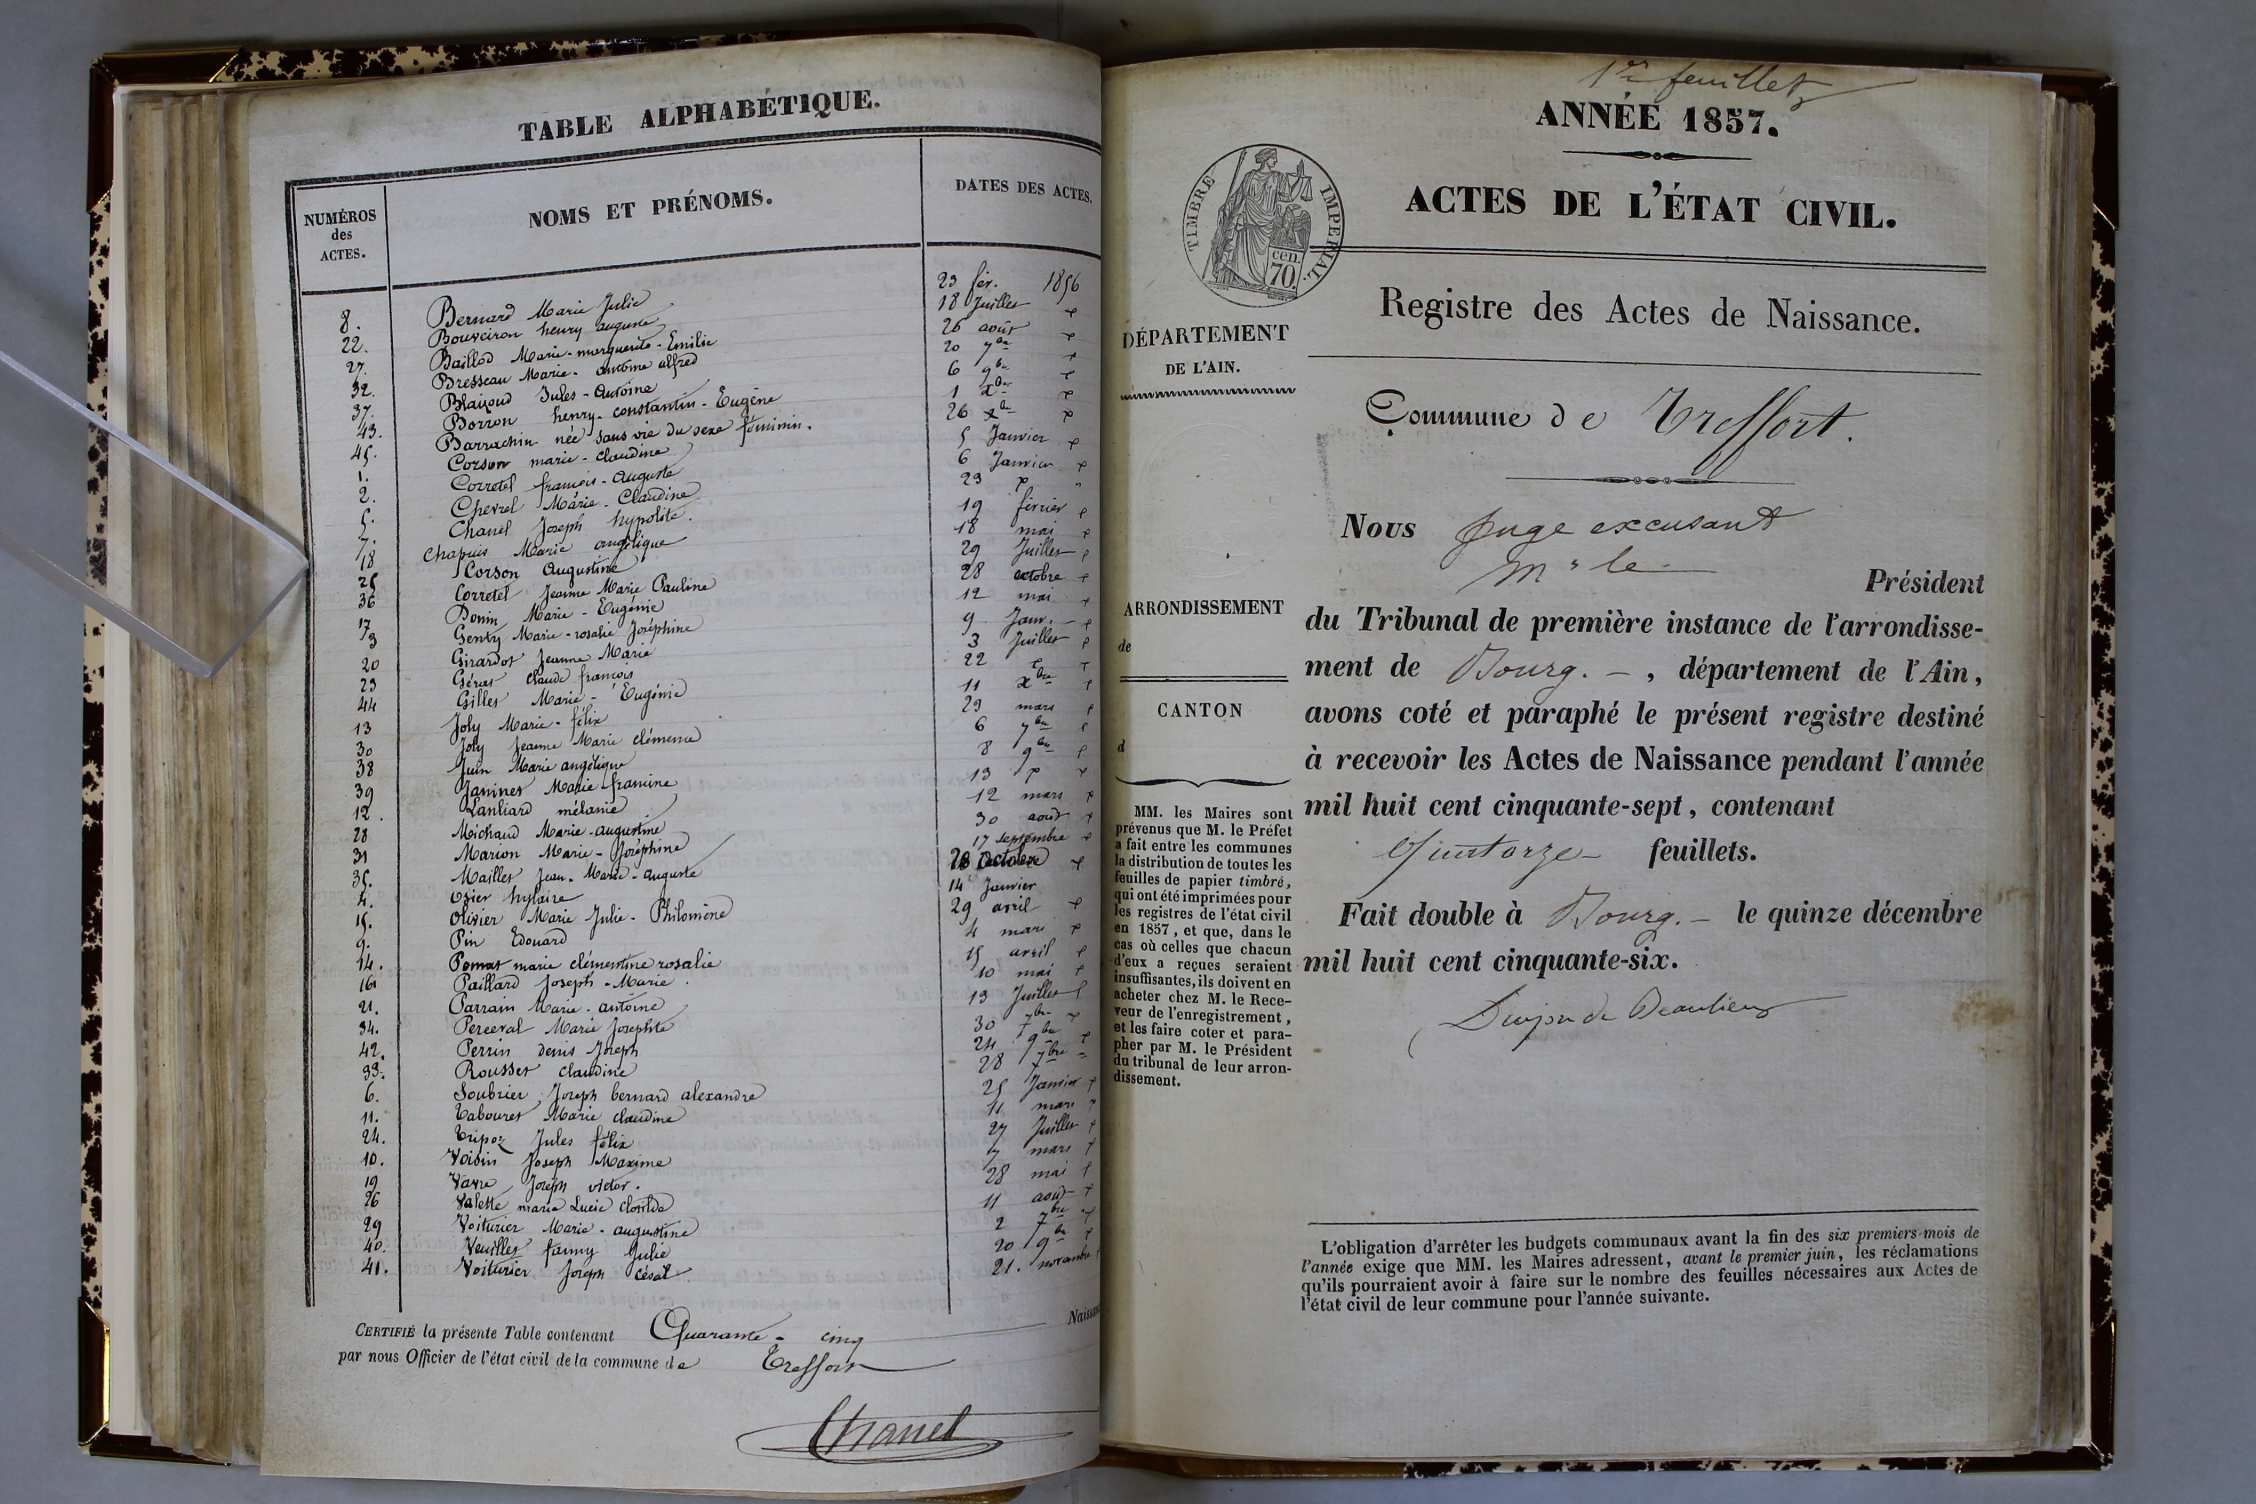 TABLE ALPHABÉTIQUE.
NUMÉROS des ACTES.
NOMS ET PRÉNOMS.
DATES DES ACTES.
8. Bernard Marie Julie 23 fév. 1856
22. Bouveiron henry auguste 18 Juillet
27. Baillod Marie-marguerite-Emilie 26 août
32. Bresseau Marie-antoine alfred 20 7bre
37. Jules-Antoine 6 9bre
43. Borron henry-constantin-Eugène 1 Xbre
45. Barrachin née sans vie du sexe féminin. 26 Xbre
1. Corson marie-claudine 5 Janvier
2. Corretel françois-Auguste 6 Janvier
5. Chevrel Marie-Claudine 23
7. Chanel Joseph hypolite. 19 février
18 Chapuis Marie angélique 18 mai
25 Corson Augustine 29 Juillet
36 Corretel Jeanne Marie Pauline 28 octobre
17 Donin Marie-Eugénie 12 mai
3 Genty Marie-rosalie Joséphine 9 Janv.
20 Girardot Jeanne Marie 3 Juillet
23 claude françois 22
44 Gillet Marie-Eugénie 11 Xbre
13 Joly Marie-félix 29 mars
30 Joly Jeanne Marie clémence 6 7bre
38 Juin Marie angélique 8 9bre
39 Janinet Marie francine 13
12. Lanliard mélanie 12 mars
28 Michaud Marie-augustine 30 août
31 Marion Marie-Joséphine 17 septembre
35. Maillet Jean-Marie-auguste 28 octobre
4. Ozier hylaire 14 Janvier
15. Olivier Marie Julie-Philomène 29 avril
9. Pin Edouard 4 mars
14. Pomat marie clémentine rosalie 15 avril
16 Paillard Joseph-Marie. 10 mai
21. Parrain Marie-antoine 13 Juillet
34. Perceval Marie Josephte 30 7bre
42. Perrin denis Joseph 24 9bre
33. Rousset claudine 28 7bre
6. Soubrier Joseph bernard alexandre 25 Janvier
11. Tabouret Marie claudine 11 mars
24. Tripoz Jules félix 27 Juillet
10. Voisin Joseph Maxime 7 mars
19 Vavre Joseph victor. 28 mai
26 Valette marie Lucie clotilde 11 août
29 Voiturier Marie-augustine 2 7bre
40. Veuillet fanny Julie 20 9bre
41. Voiturier Joseph césar 21. novembre
CERTIFIÉ la présente Table contenant Quarante-cinq Naissan
par nous Officier de l'état civil de la commune de Treffort
Chanel
1er feuillet
ANNÉE 1857.
ACTES DE L'ÉTAT CIVIL.
TIMBRE IMPERIAL.
cen.
70.
Registre des Actes de Naissance.
DÉPARTEMENT
DE L'AIN.
Commune de Treffort.
ARRONDISSEMENT
de
CANTON
d
MM. les Maires sont
prévenus que M. le Préfet
a fait entre les communes
la distribution de toutes les
feuilles de papier timbré,
qui ont été imprimées pour
les registres de l'état civil
en 1857, et que, dans le
cas où celles que chacun
d'eux a reçues seraient
insuffisantes, ils doivent en
acheter chez M. le Rece-
veur de l'enregistrement,
et les faire coter et para-
pher par M. le Président
du tribunal de leur arron-
dissement.
Nous Juge excusant
Mr le Président
du Tribunal de première instance de l'arrondisse-
ment de Bourg. -, département de l'Ain,
avons coté et paraphé le présent registre destiné
à recevoir les Actes de Naissance pendant l'année
mil huit cent cinquante-sept, contenant
feuillets.
Fait double à Bourg. - le quinze décembre
mil huit cent cinquante-six.
de Beaulieu
L'obligation d'arrêter les budgets communaux avant la fin des six premiers mois de
l'année exige que MM. les Maires adressent, avant le premier juin, les réclamations
qu'ils pourraient avoir à faire sur le nombre des feuilles nécessaires aux Actes de
l'état civil de leur commune pour l'année suivante.